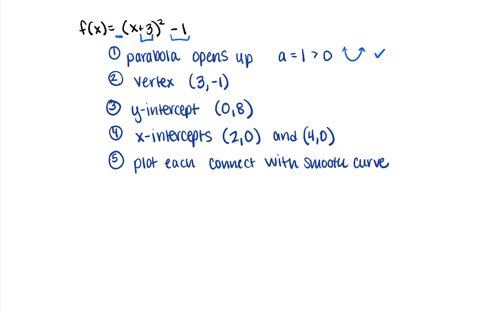 f(x)= (x+3)² -1
① parabola opens up a=1>0 ✓
② vertex (3,-1)
③ y-intercept (0,8)
④ x-intercepts (2,0) and (4,0)
⑤ plot each connect with smooth curve